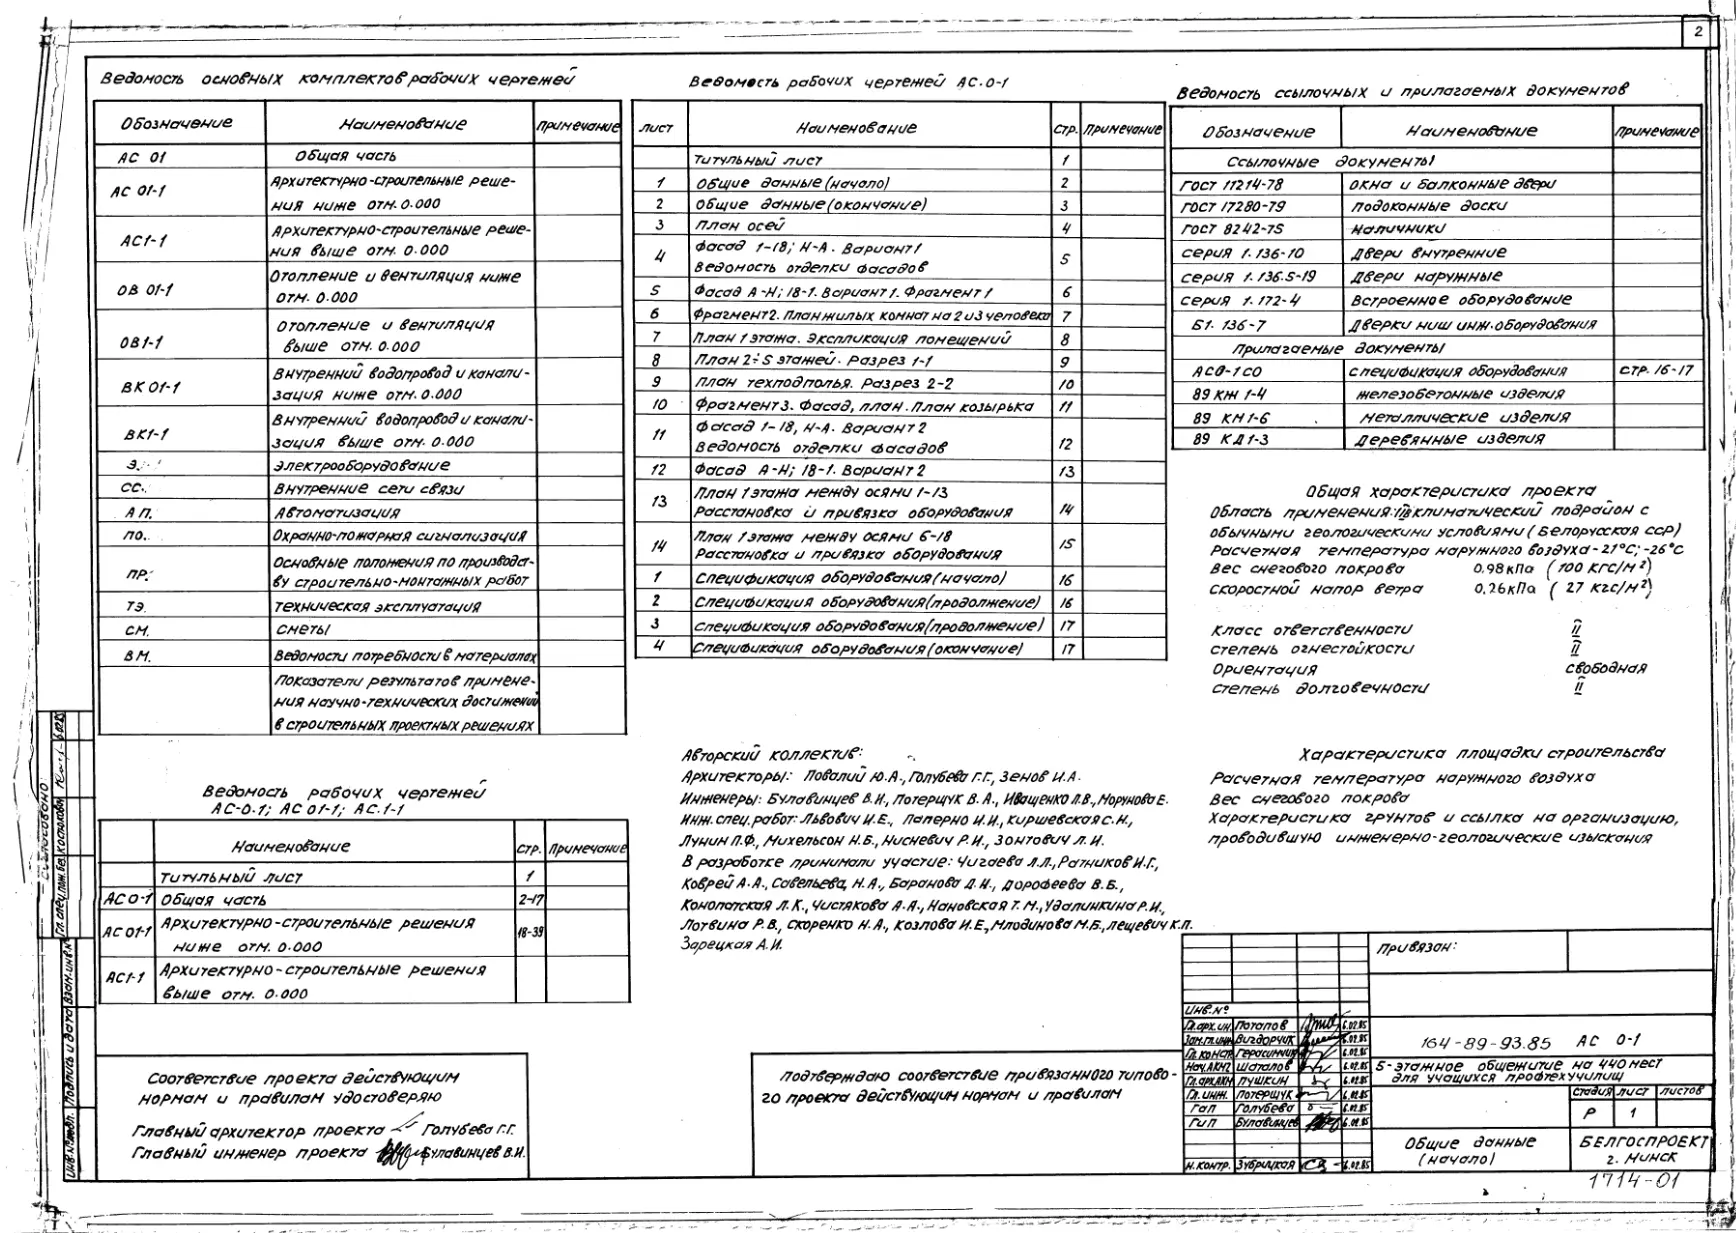 2
Ведомость основных комплектов рабочих чертежей
Обозначение Наименование Примечание
АС 01 Общая часть
АС 01-1 Архитектурно-строительные реше-
ния ниже отм. 0.000
АС1-1 Архитектурно-строительные реше-
ния выше отм. 0.000
ОВ 01-1 Отопление и вентиляция ниже
отм. 0.000
ОВ1-1 Отопление и вентиляция
выше отм. 0.000
ВК 01-1 Внутренний водопровод и канали-
зация ниже отм. 0.000
ВК1-1 Внутренний водопровод и канали-
зация выше отм. 0.000
Э. Электрооборудование
СС. Внутренние сети связи
АП. Автоматизация
ПО. Охранно-пожарная сигнализация
ПР. Основные положения по производст-
ву строительно-монтажных работ
ТЭ. Техническая эксплуатация
СМ. Сметы
ВМ. Ведомости потребности в материалах
Показатели результатов примене-
ния научно-технических достижений
в строительных проектных решениях
Ведомость рабочих чертежей
АС-0.1; АС 01-1; АС.1-1
Наименование Стр. Примечание
Титульный лист 1
АС 0-1 Общая часть 2-17
АС 01-1 Архитектурно-строительные решения
ниже отм. 0.000 18-39
АС1-1 Архитектурно-строительные решения
выше отм. 0.000
Соответствие проекта действующим
нормам и правилам удостоверяю
Главный архитектор проекта Голубева Г.Г.
Главный инженер проекта Булавинцев В.И.
Ведомость рабочих чертежей АС.0-1
Лист Наименование Стр. Примечание
Титульный лист 1
1 Общие данные (начало) 2
2 Общие данные (окончание) 3
3 План осей 4
4 Фасад 1-18; Н-А. Вариант 1
Ведомость отделки фасадов 5
5 Фасад А-Н; 18-1. Вариант 1. Фрагмент 1 6
6 Фрагмент 2. План жилых комнат на 2 и 3 человека 7
7 План 1 этажа. Экспликация помещений 8
8 План 2÷5 этажей. Разрез 1-1 9
9 План техподполья. Разрез 2-2 10
10 Фрагмент 3. Фасад, план. План козырька 11
11 Фасад 1-18, Н-А. Вариант 2
Ведомость отделки фасадов 12
12 Фасад А-Н; 18-1. Вариант 2 13
13 План 1 этажа между осями 1-13
Расстановка и привязка оборудования 14
14 План 1 этажа между осями 6-18
Расстановка и привязка оборудования 15
1 Спецификация оборудования (начало) 16
2 Спецификация оборудования (продолжение) 16
3 Спецификация оборудования (продолжение) 17
4 Спецификация оборудования (окончание) 17
Авторский коллектив:
Архитекторы: Повалий Ю.А., Голубева Г.Г., Зенов И.А.
Инженеры: Булавинцев В.И., Потерщук В.А., Иващенко Л.В., Морунова Е.
Инж. спец. работ: Львович И.Е., Паперно И.И., Киршевская С.Н.,
Лунин Л.Ф., Михельсон Н.Б., Нисневич Р.И., Зонтович Л.И.
В разработке принимали участие: Чигаева Л.Л., Ратников И.Г.,
Коврей А.А., Савельева Н.А., Баранова Д.И., Дорофеева В.Б.,
Конопатская Л.К., Чистякова А.А., Нановская Т.М., Удалинкина Р.И.,
Лотвина Р.В., Скоренко Н.А., Козлова И.Е., Млодинова М.Б., Лещевич К.П.
Зарецкая А.И.
Подтверждаю соответствие привязанного типово-
го проекта действующим нормам и правилам
Ведомость ссылочных и прилагаемых документов
Обозначение Наименование Примечание
Ссылочные документы
ГОСТ 11214-78 Окна и балконные двери
ГОСТ 17280-79 Подоконные доски
ГОСТ 8242-75 Наличники
серия 1.136-10 Двери внутренние
серия 1.136.5-19 Двери наружные
серия 1.172-4 Встроенное оборудование
Б1.136-7 Дверки ниш инж. оборудования
Прилагаемые документы
АС0-1СО Спецификация оборудования стр. 16-17
89 КЖ 1-4 Железобетонные изделия
89 КМ1-6 Металлические изделия
89 КД1-3 Деревянные изделия
Общая характеристика проекта
Область применения: IIв климатический подрайон с
обычными геологическими условиями (Белорусская ССР)
Расчетная температура наружного воздуха -21°С; -26°С
Вес снегового покрова 0.98кПа (100 кгс/м²)
Скоростной напор ветра 0.26кПа (27 кгс/м²)
Класс ответственности II
Степень огнестойкости II
Ориентация свободная
Степень долговечности II
Характеристика площадки строительства
Расчетная температура наружного воздуха
Вес снегового покрова
Характеристика грунтов и ссылка на организацию,
проводившую инженерно-геологические изыскания
Привязан:
Инв.№
Гл.арх.ин. Потапов 6.02.85
Зам.гл.инж Вигдорчик 6.02.85
Гл.констр Герасимчик 6.02.85
Нач.АКМ2 Шаталов 6.02.85
Гл.арх.АКМ Пушкин 6.02.85
Гл.инж. Потерщук 6.02.85
ГАП Голубева 6.02.85
ГИП Булавинцев 6.02.85
Н.контр. Зубрицкая 6.02.85
164-89-93.85 АС 0-1
5-этажное общежитие на 440 мест
для учащихся профтехучилищ
Стадия Лист Листов
Р 1
Общие данные
(начало)
БЕЛГОСПРОЕКТ
г. Минск
1714-01
Согласовано
Инв.№ подл. Подпись и дата Взам.инв.№